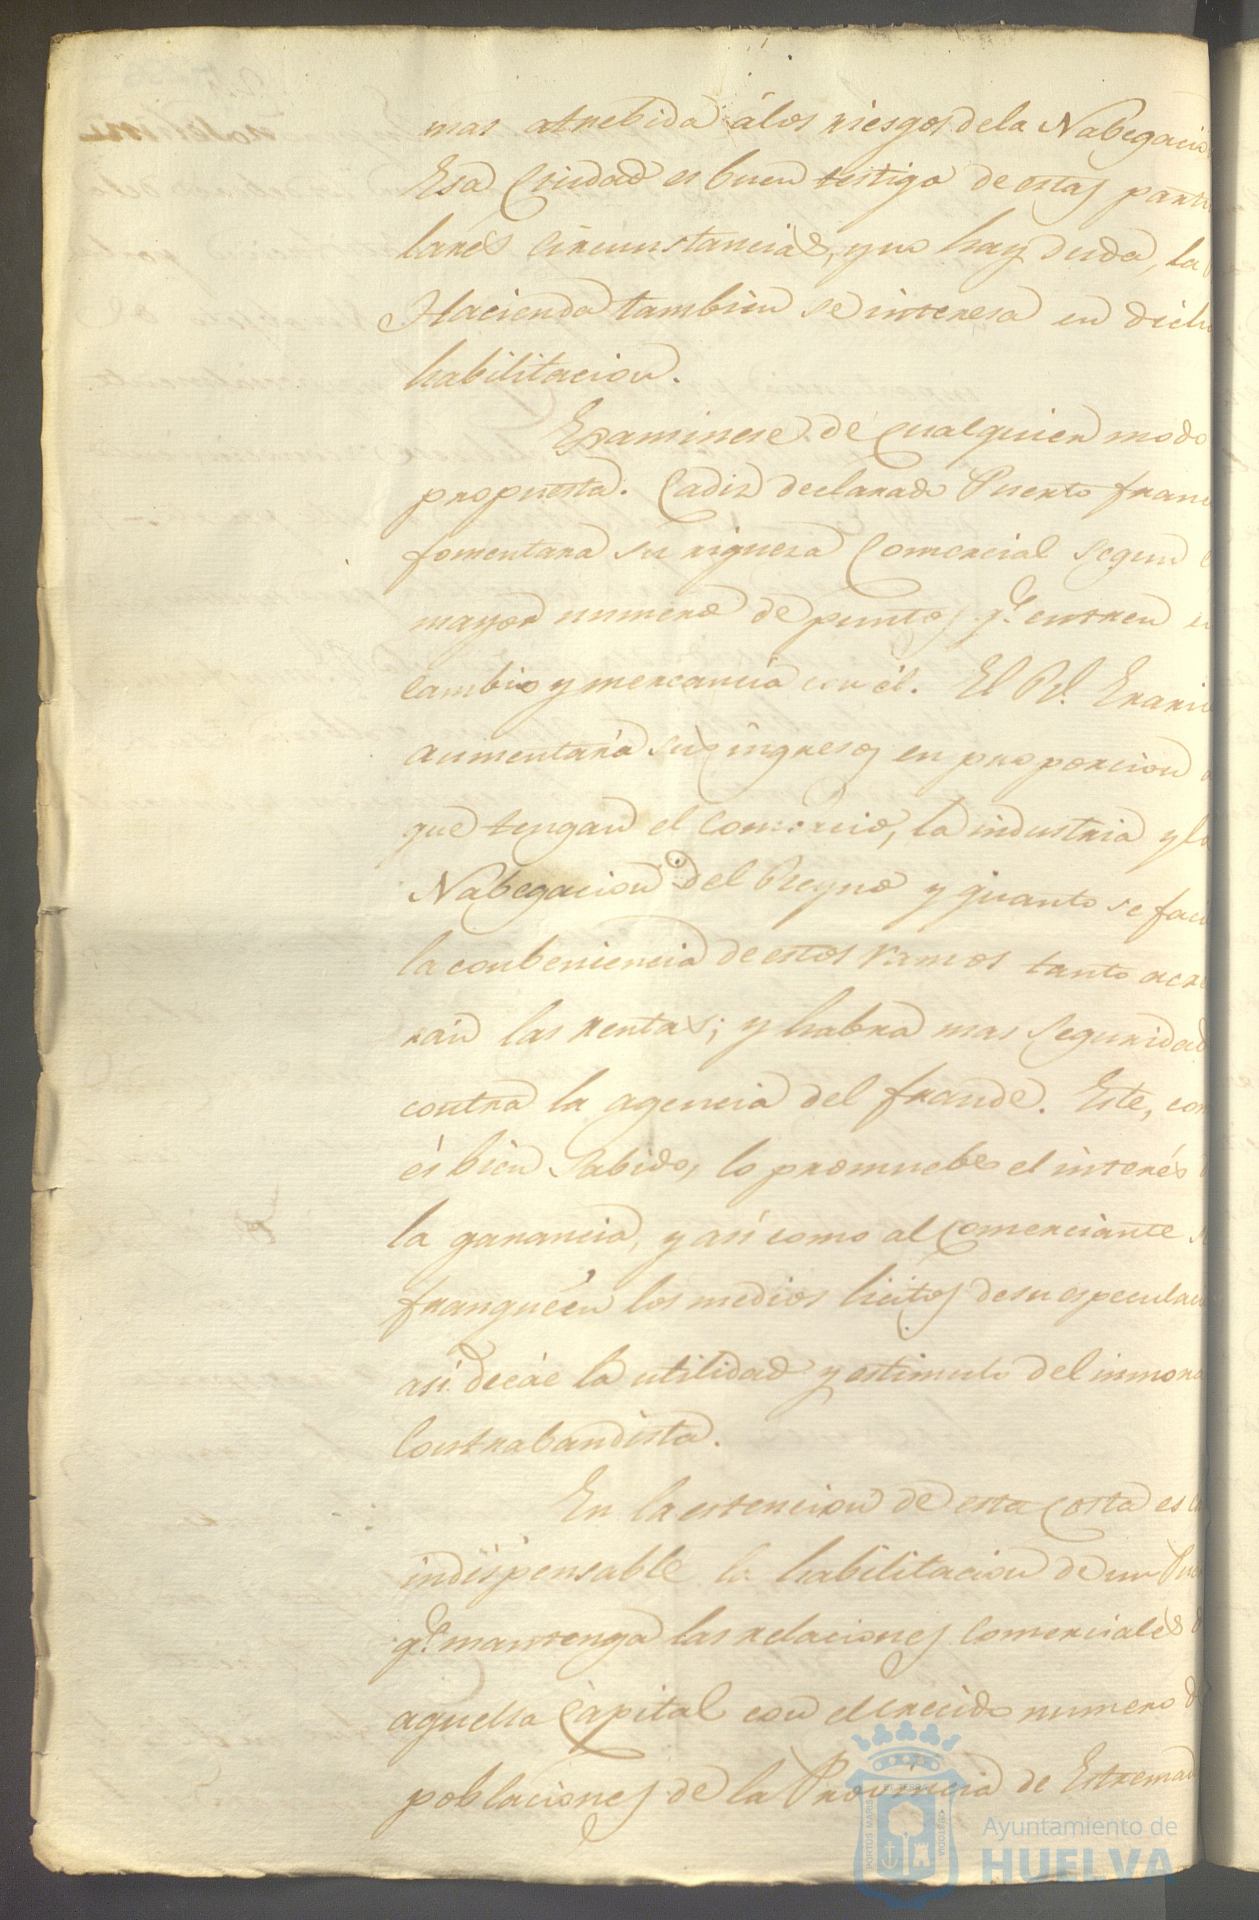 mas atrebida álos riesgos dela Nabegacio
Esa Ciudad es buen testigo de estas parti
lares circunstancias, y no hay duda, la
Hacienda tambien se interesa en dich
habilitacion.
Examinese de cualquier modo
propuesta. Cadiz declarado Puerto fran
fomentara su riqueza Comercial segun
mayor numero de puntos q.e entren en
cambio y mercancia con él. El Rl. Erario
aumentará sus ingresos en proporcion
que tengan el comercio, la industria y la
Nabegacion del Reyno y quanto se faci
la conbeniencia de estos ramos tanto acre
rán las rentas; y habra mas seguridad
contra la agencia del fraude. Este, com
és bien Sabido, lo promuebe el interés
la ganancia, y asi como al Comerciante
franqueén los medios licitos de su especulaci
asi decáe la utilidad y estimulo del inmora
Contrabandista.
En la estencion de esta Costa es
indispensable la habilitacion de un Pue
q.e mantenga las relaciones Comerciales
aquella Capital con el crecido numero d
poblaciones de la Provincia de Estremad
Ayuntamiento de
HUELVA